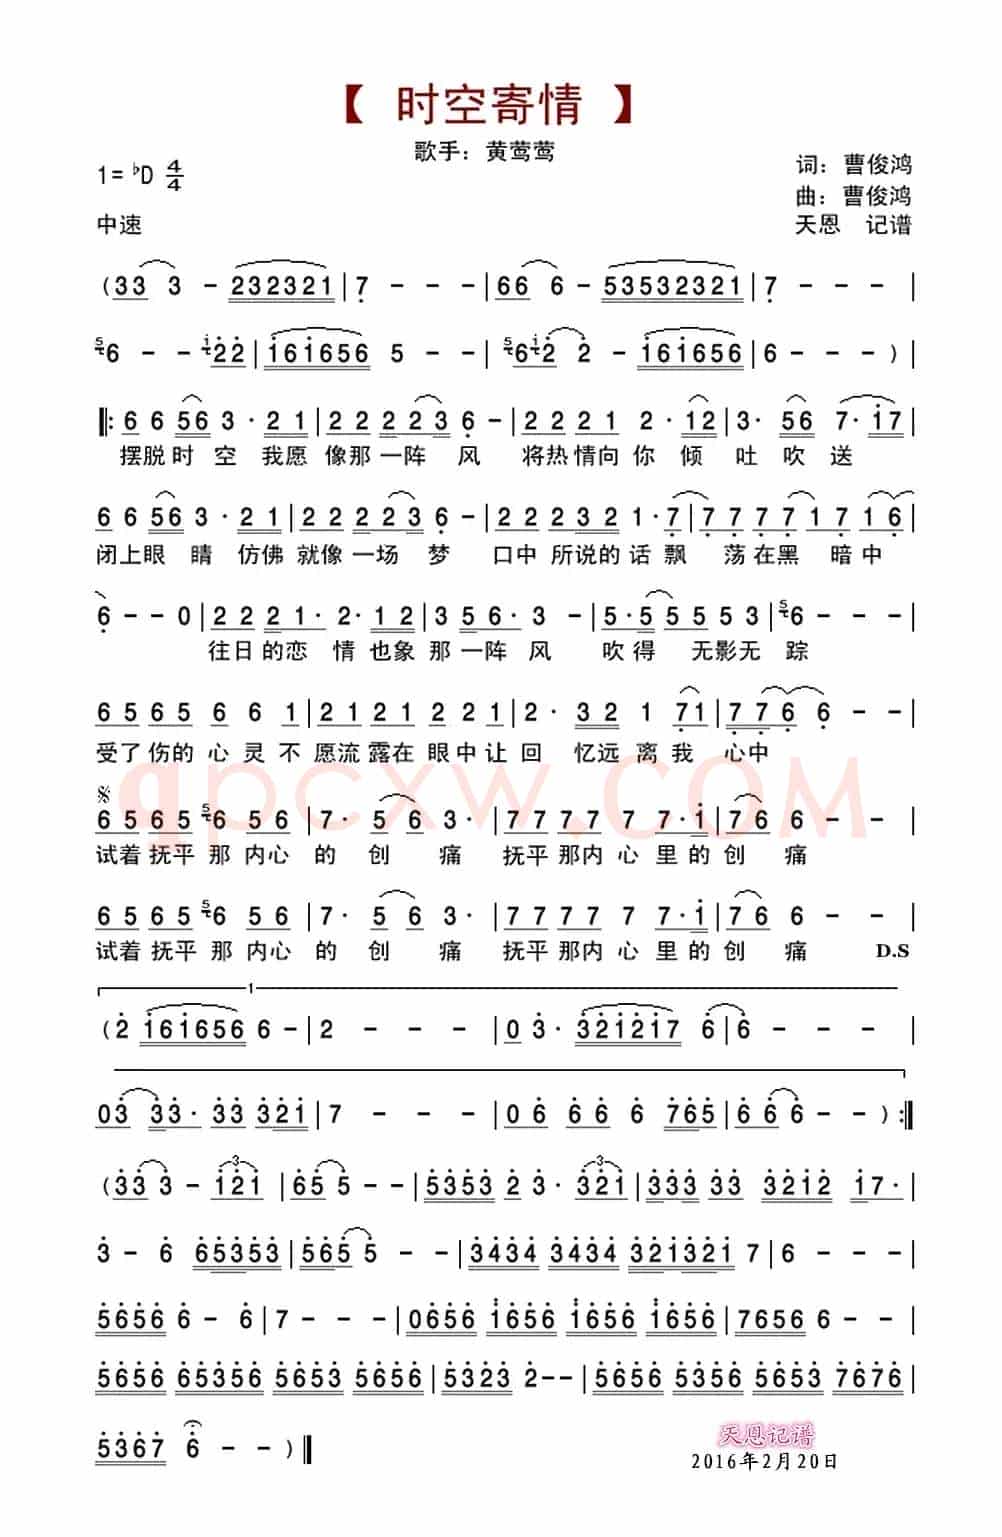 【 时空寄情 】
歌手：黄莺莺
1=♭D 4/4
词：曹俊鸿
曲：曹俊鸿
中速
天恩 记谱
(33 3 - 232321|7 - - -|66 6 - 53532321|7 - - -|
56 - - i22|i6i656 5 - -|56i2 2 - i6i656|6 - - )|
‖: 6 6 56 3· 21|22223 6 -|2221 2· 12|3· 56 7· i7|
摆脱时空 我愿像那一阵风 将热情向你倾吐吹送
6 6 56 3· 21|22223 6 -|222321·7|777717 16|
闭上眼睛 仿佛就像一场梦 口中所说的话飘荡在黑暗中
6 - - 0|2221· 2· 12|356· 3 -|5·55553|56 - -
往日的恋情也象那一阵风 吹得 无影无踪
6565 6 6 1|2121 2 21|2· 32 1 71|776 6 - -|
受了伤的心灵不愿流露在眼中让回忆远离我心中
6565 56 56|7· 56 3·|7777 7 7·i|76 6 - -|
试着抚平那内心的创痛 抚平那内心里的创痛
6565 56 56|7· 56 3·|7777 7 7·i|76 6 - -|
试着抚平那内心的创痛 抚平那内心里的创痛 D.S
1
(2 i6i656 6 -|2 - - -|0 3· 32i2i7 6|6 - - -|
03 33· 33 32i|7 - - -|0 6 66 6 765|66 6 - - ):‖
(33 3 - 3 i2i|65 5 - -|5353 2 3· 3 32i|333 33 32i2 i7·|
3 - 6 65353|565 5 - -|3434 3434 32i32i 7|6 - - -|
5656 6 - 6|7 - - -|0656 i656 i656 i656|7656 6 - -|
5656 65356 5653 5656|5323 2--|5656 5356 5653 7676|
5367 6 - - )‖
天恩记谱
2016年2月20日
qpcxw.COM